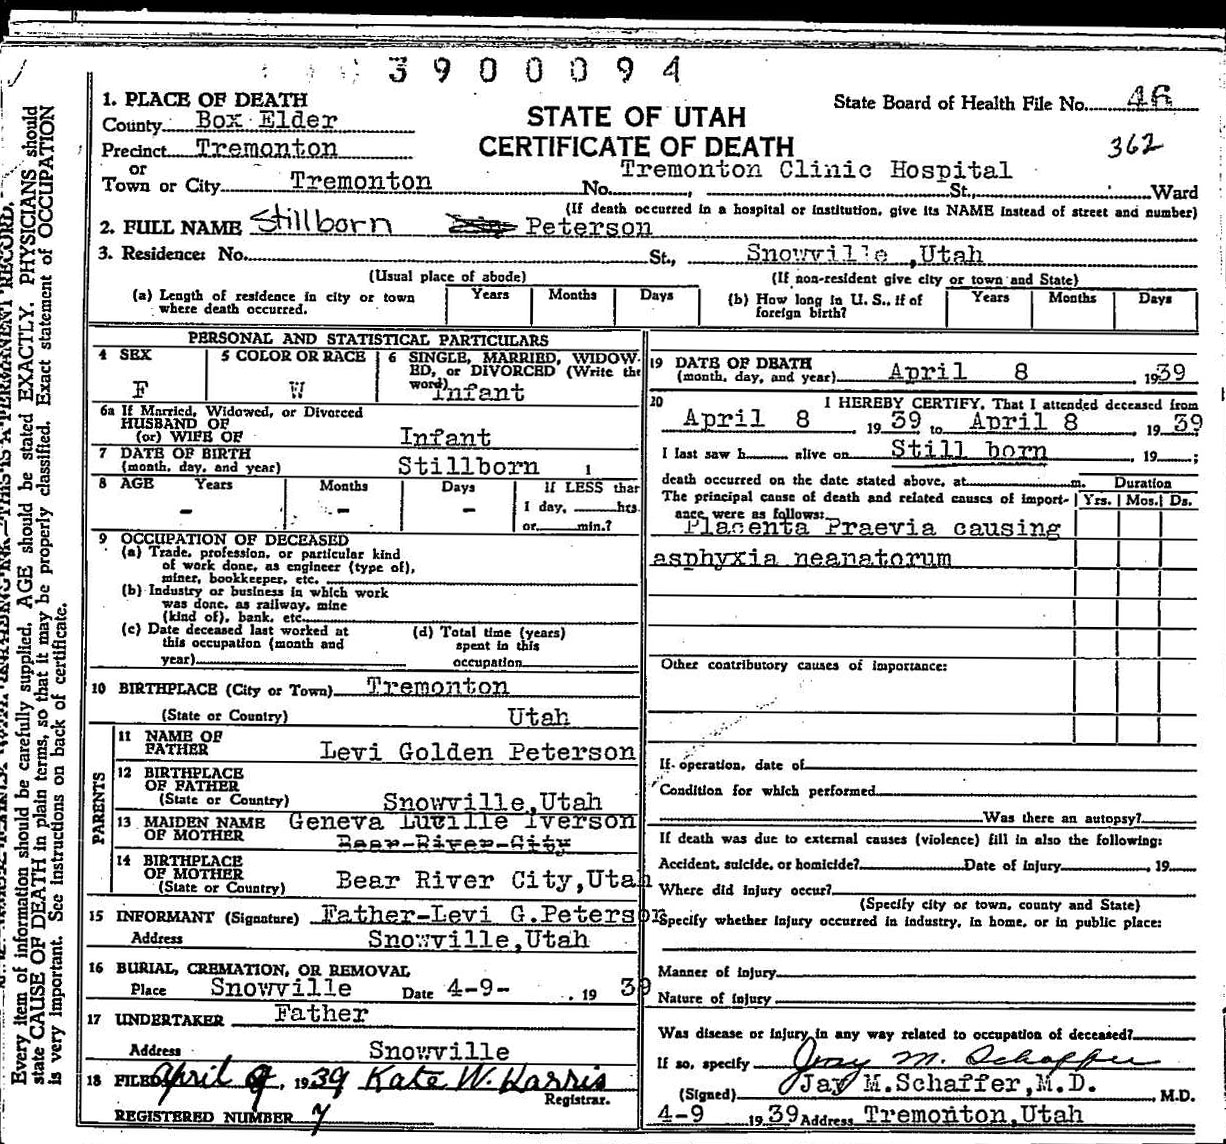 3 9 0 0 0 9 4
1. PLACE OF DEATH
County Box Elder
Precinct Tremonton
or
Town or City Tremonton
STATE OF UTAH
CERTIFICATE OF DEATH
State Board of Health File No. 46
362
Tremonton Clinic Hospital
No. , St., Ward
(If death occurred in a hospital or institution, give its NAME instead of street and number)
2. FULL NAME Stillborn Peterson
3. Residence: No. St., Snowville ,Utah
(Usual place of abode) (If non-resident give city or town and State)
(a) Length of residence in city or town where death occurred. Years Months Days
(b) How long in U. S., if of foreign birth? Years Months Days
PERSONAL AND STATISTICAL PARTICULARS
4 SEX 5 COLOR OR RACE 6 SINGLE, MARRIED, WIDOW-
ED, or DIVORCED (Write the
word)
F W Infant
6a If Married, Widowed, or Divorced
HUSBAND OF
(or) WIFE OF Infant
7 DATE OF BIRTH
(month, day, and year) Stillborn 1
8 AGE Years Months Days If LESS than
1 day, hrs.
or min.?
- - -
9 OCCUPATION OF DECEASED
(a) Trade, profession, or particular kind
of work done, as engineer (type of),
miner, bookkeeper, etc.
(b) Industry or business in which work
was done, as railway, mine
(kind of), bank, etc.
(c) Date deceased last worked at
this occupation (month and
year)
(d) Total time (years)
spent in this
occupation
10 BIRTHPLACE (City or Town) Tremonton
(State or Country) Utah
PARENTS
11 NAME OF
FATHER Levi Golden Peterson
12 BIRTHPLACE
OF FATHER
(State or Country) Snowville,Utah
13 MAIDEN NAME
OF MOTHER Geneva Lucille Iverson
Bear-River-City
14 BIRTHPLACE
OF MOTHER
(State or Country) Bear River City,Utah
15 INFORMANT (Signature) Father-Levi G.Peterson
Address Snowville,Utah
16 BURIAL, CREMATION, OR REMOVAL
Place Snowville Date 4-9- , 19 39
17 UNDERTAKER Father
Address Snowville
18 FILED April 9, 1939 Kate W. Harris
Registrar.
REGISTERED NUMBER 7
19 DATE OF DEATH
(month, day, and year) April 8 , 1939
20 I HEREBY CERTIFY, That I attended deceased from
April 8 , 19 39 to April 8 , 19 39
I last saw h alive on Still born 19 ;
death occurred on the date stated above, at m. Duration
The principal cause of death and related causes of import- Yrs. Mos. Ds.
ance were as follows:
Placenta Praevia causing
asphyxia neanatorum
Other contributory causes of importance:
If operation, date of
Condition for which performed
Was there an autopsy?
If death was due to external causes (violence) fill in also the following:
Accident, suicide, or homicide? Date of injury , 19
Where did injury occur?
(Specify city or town, county and State)
Specify whether injury occurred in industry, in home, or in public place:
Manner of injury
Nature of injury
Was disease or injury in any way related to occupation of deceased?
If so, specify Jay M. Schaffer
(Signed) Jay M.Schaffer,M.D. M.D.
4-9 19 39 Address Tremonton,Utah
Every item of information should be carefully supplied. AGE should be stated EXACTLY. PHYSICIANS should
state CAUSE OF DEATH in plain terms, so that it may be properly classified. Exact statement of OCCUPATION
is very important. See instructions on back of certificate.
THIS IS A PERMANENT RECORD.